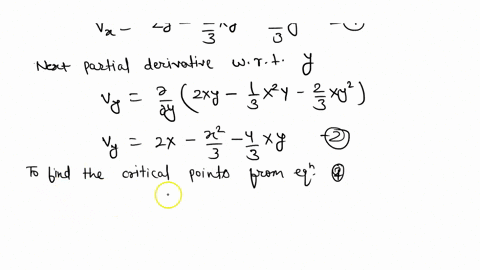 Vx = 2y - 2/3 xy - 2/3 y² —①
Next partial derivative w.r.t. y
Vy = ∂/∂y (2xy - 1/3 x²y - 2/3 xy²)
Vy = 2x - x²/3 - 4/3 xy —②
To find the critical points from eqⁿ: